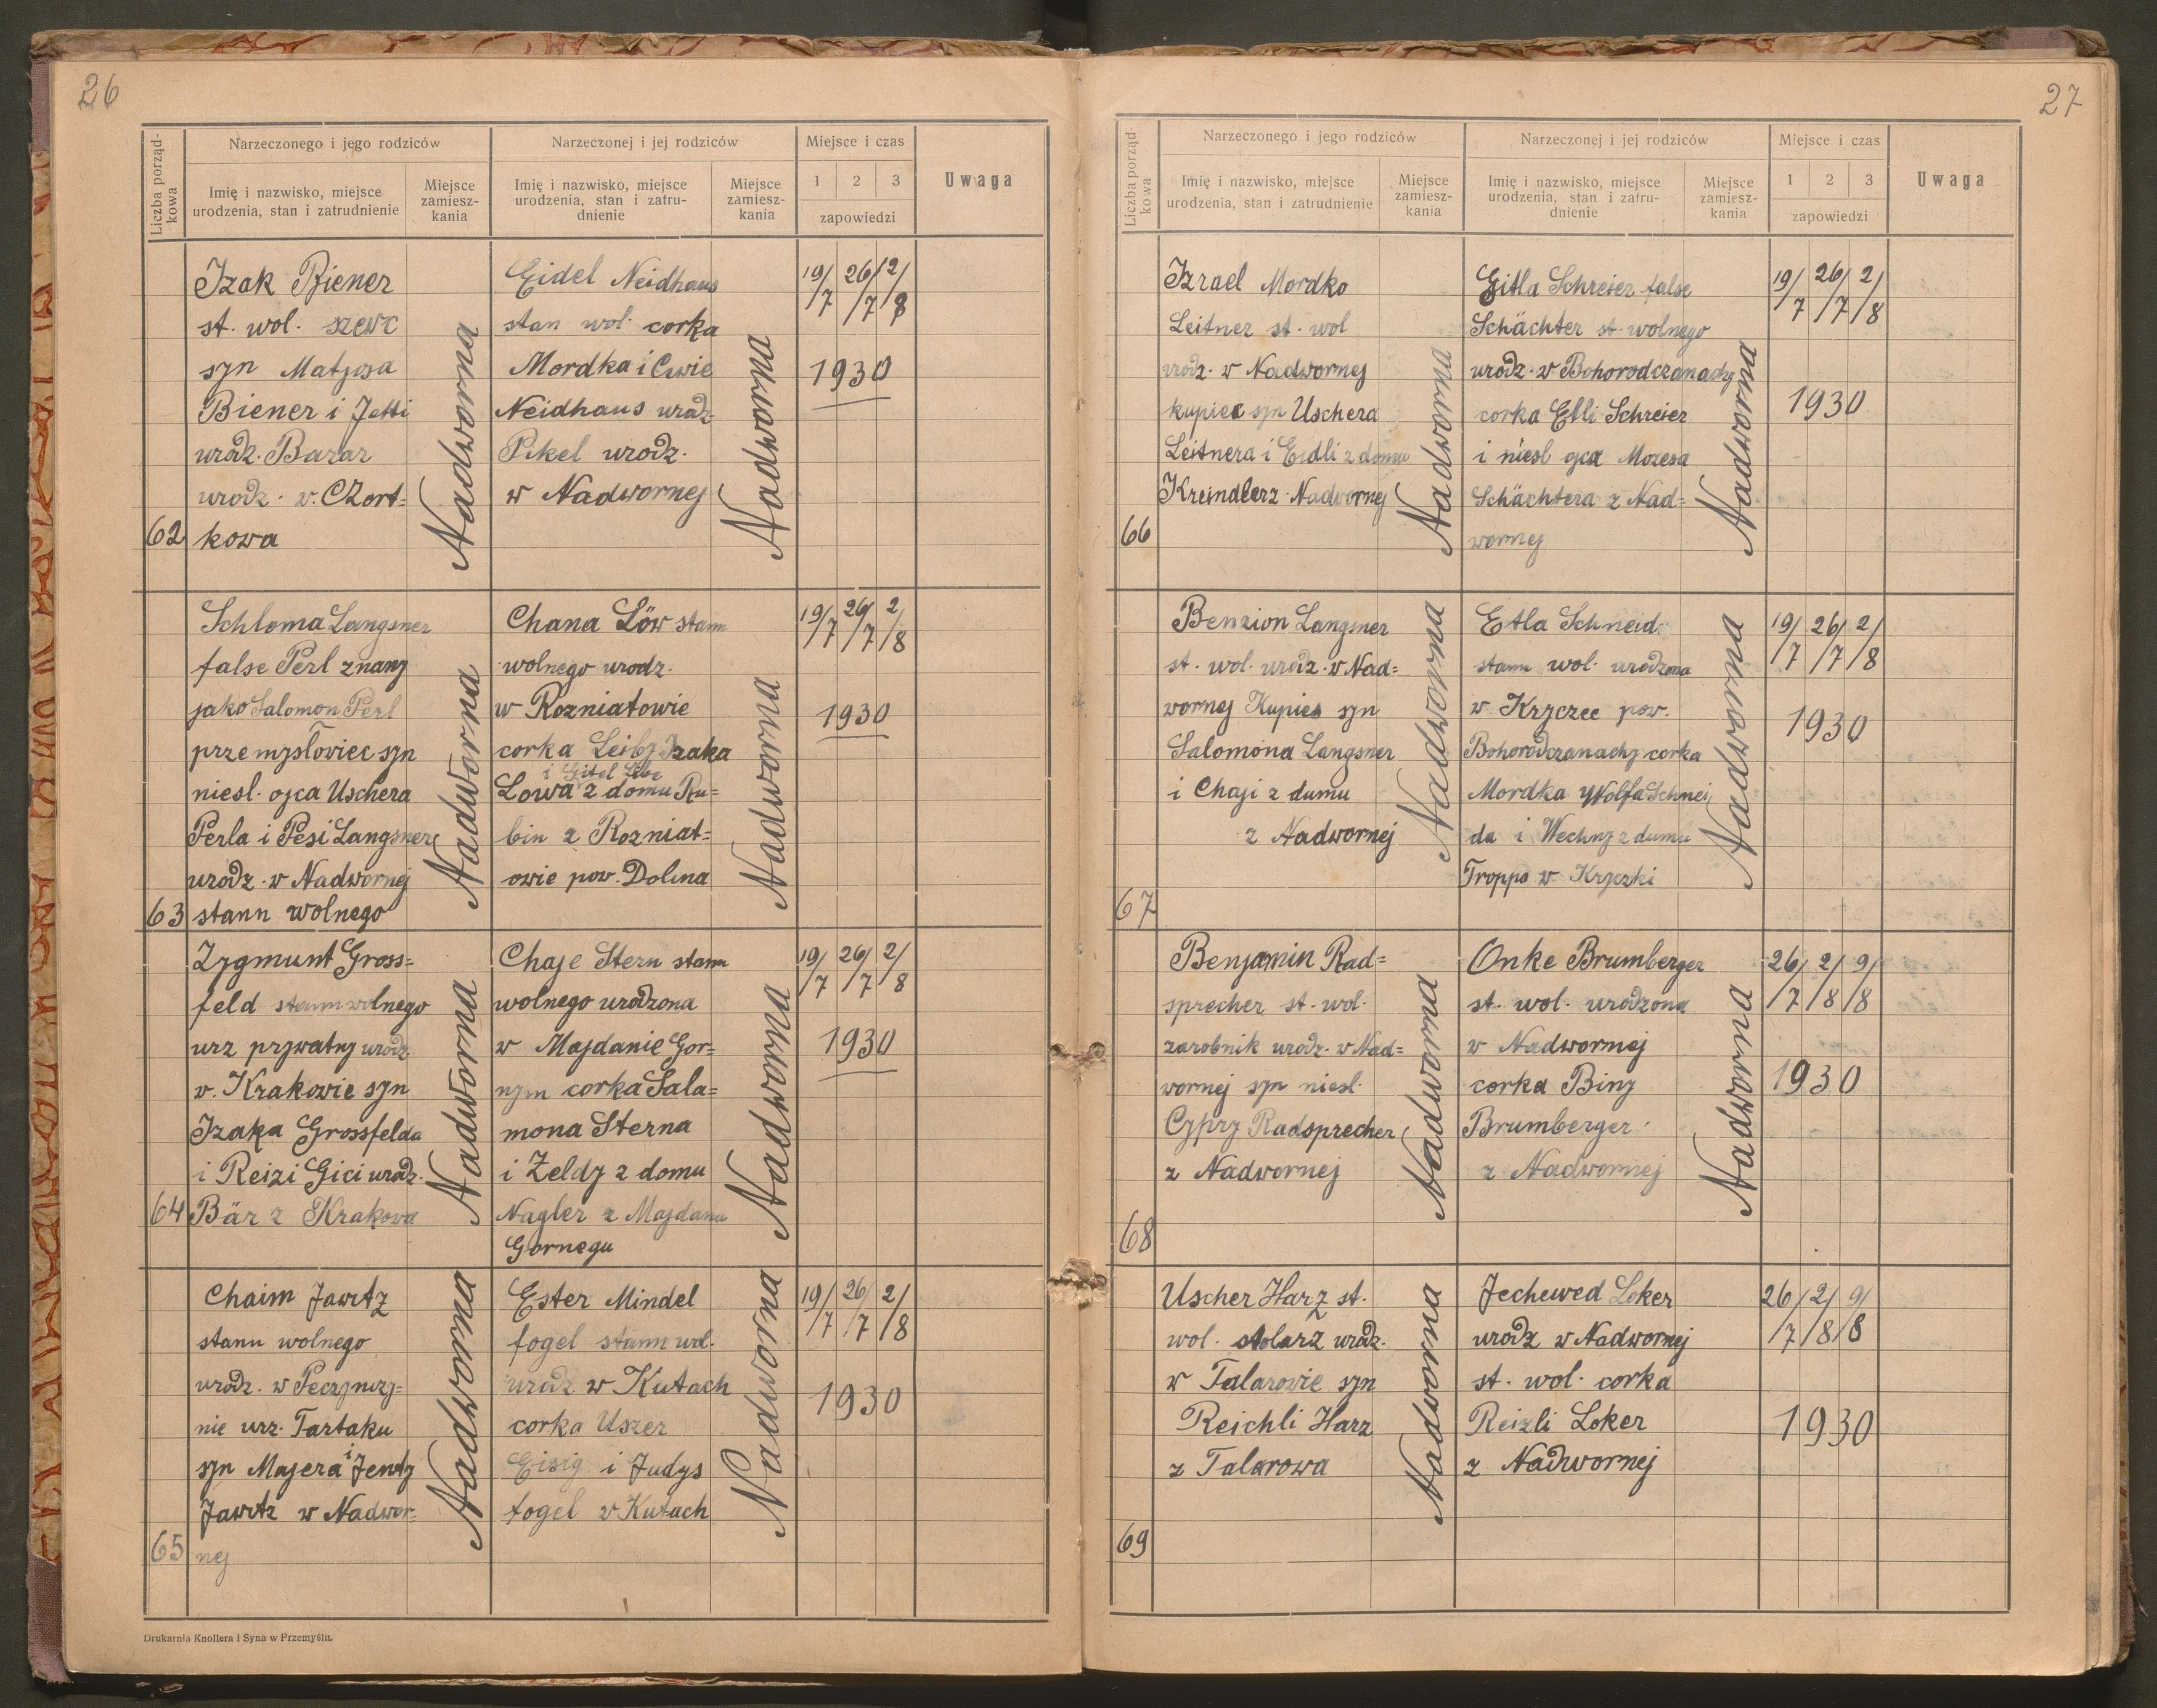 26
Liczba porząd-
kowa
Narzeczonego i jego rodziców
Narzeczonej i jej rodziców
Miejsce i czas
Uwaga
Imię i nazwisko, miejsce
urodzenia, stan i zatrudnienie
Miejsce
zamiesz-
kania
Imię i nazwisko, miejsce
urodzenia, stan i zatru-
dnienie
Miejsce
zamiesz-
kania
1 2 3
zapowiedzi
62
Izak Biener
st. wol. szewc
syn Matysa
Biener i Jetti
urodz. Bazar
urodz. w. Czort=
kowa
Nadworna
Eidel Neidhaus
stan wol. corka
Mordka i Cwie
Neidhaus urodz.
Pikel urodz.
w Nadwornej
Nadworna
19/7 26/7 2/8
1930
63
Schloma Langsner
false Perl znany
jako Salomon Perl
przemysłowiec syn
niesl. ojca Uschera
Perla i Pesi Langsner
urodz. w Nadwornej
stanu wolnego
Nadworna
Chana Löw stanu
wolnego urodz.
w Rozniatowie
corka Leiby Izaka
i Gitel Libe
Lowa z domu Ru=
bin z Rozniat=
owie pow. Dolina
Nadworna
19/7 26/7 2/8
1930
64
Zygmunt Gross=
feld stanu wolnego
urz prywatny urodz.
w. Krakowie syn
Izaka Grossfelda
i Reizi Gici urodz.
Bär z Krakowa
Nadworna
Chaje Stern stanu
wolnego urodzona
w Majdanie Gor=
nym corka Sala=
mona Sterna
i Zeldy z domu
Nagler z Majdanu
Gornegu
Nadworna
19/7 26/7 2/8
1930
65
Chaim Jawetz
stanu wolnego
urodz. w Peczyniży=
nie urz. Tartaku
syn Majera i Jenty
Jawetz w Nadwor-
nej
Nadworna
Ester Mindel
fogel stanu wol.
urodz w Kutach
corka Uszer
Eisig i Judys
fogel w Kutach
Nadworna
19/7 26/7 2/8
1930
Drukarnia Knollera i Syna w Przemyślu.
27
Liczba porząd-
kowa
Narzeczonego i jego rodziców
Narzeczonej i jej rodziców
Miejsce i czas
Uwaga
Imię i nazwisko, miejsce
urodzenia, stan i zatrudnienie
Miejsce
zamiesz-
kania
Imię i nazwisko, miejsce
urodzenia, stan i zatru-
dnienie
Miejsce
zamiesz-
kania
1 2 3
zapowiedzi
66
Izrael Mordko
Leitner st. wol
urodz. w Nadwornej
kupiec syn Uschera
Leitnera i Eidli z domu
Kreindler z Nadwornej
Nadworna
Gitla Schreier false
Schächter st. wolnego
urodz. w Bohorodczanachy
corka Etli Schreier
i niesl ojca Mozesa
Schächtera z Nad=
wornej
Nadworna
19/7 26/7 2/8
1930
67
Benzion Langsner
st. wol. urodz. w Nad=
wornej Kupiec syn
Salomona Langsner
i Chaji z dumu
z Nadwornej
Nadworna
Etla Schneid.
stanu wol. urodzona
w Kryczce pow.
Bohorodczanachy corka
Mordka Wolfa Schnei
da i Wechny z dumu
Troppo w Kryczki
Nadworna
19/7 26/7 2/8
1930
68
Benjamin Rad=
sprecher st. wol.
zarobnik urodz. w Nad=
wornej syn niesl.
Cypry Radsprecher
z Nadwornej
Nadworna
Onke Brumberger
st. wol. urodzona
w Nadwornej
corka Biny
Brumberger
z Nadwornej
Nadworna
26/7 2/8 9/8
1930
69
Uscher Harz st.
wol. stolarz urodz.
w Talarowie syn
Reichli Harz
z Talarowa
Nadworna
Jechewed Loker
urodz w Nadwornej
st. wol. corka
Reizli Loker
z Nadwornej
26/7 2/8 9/8
1930